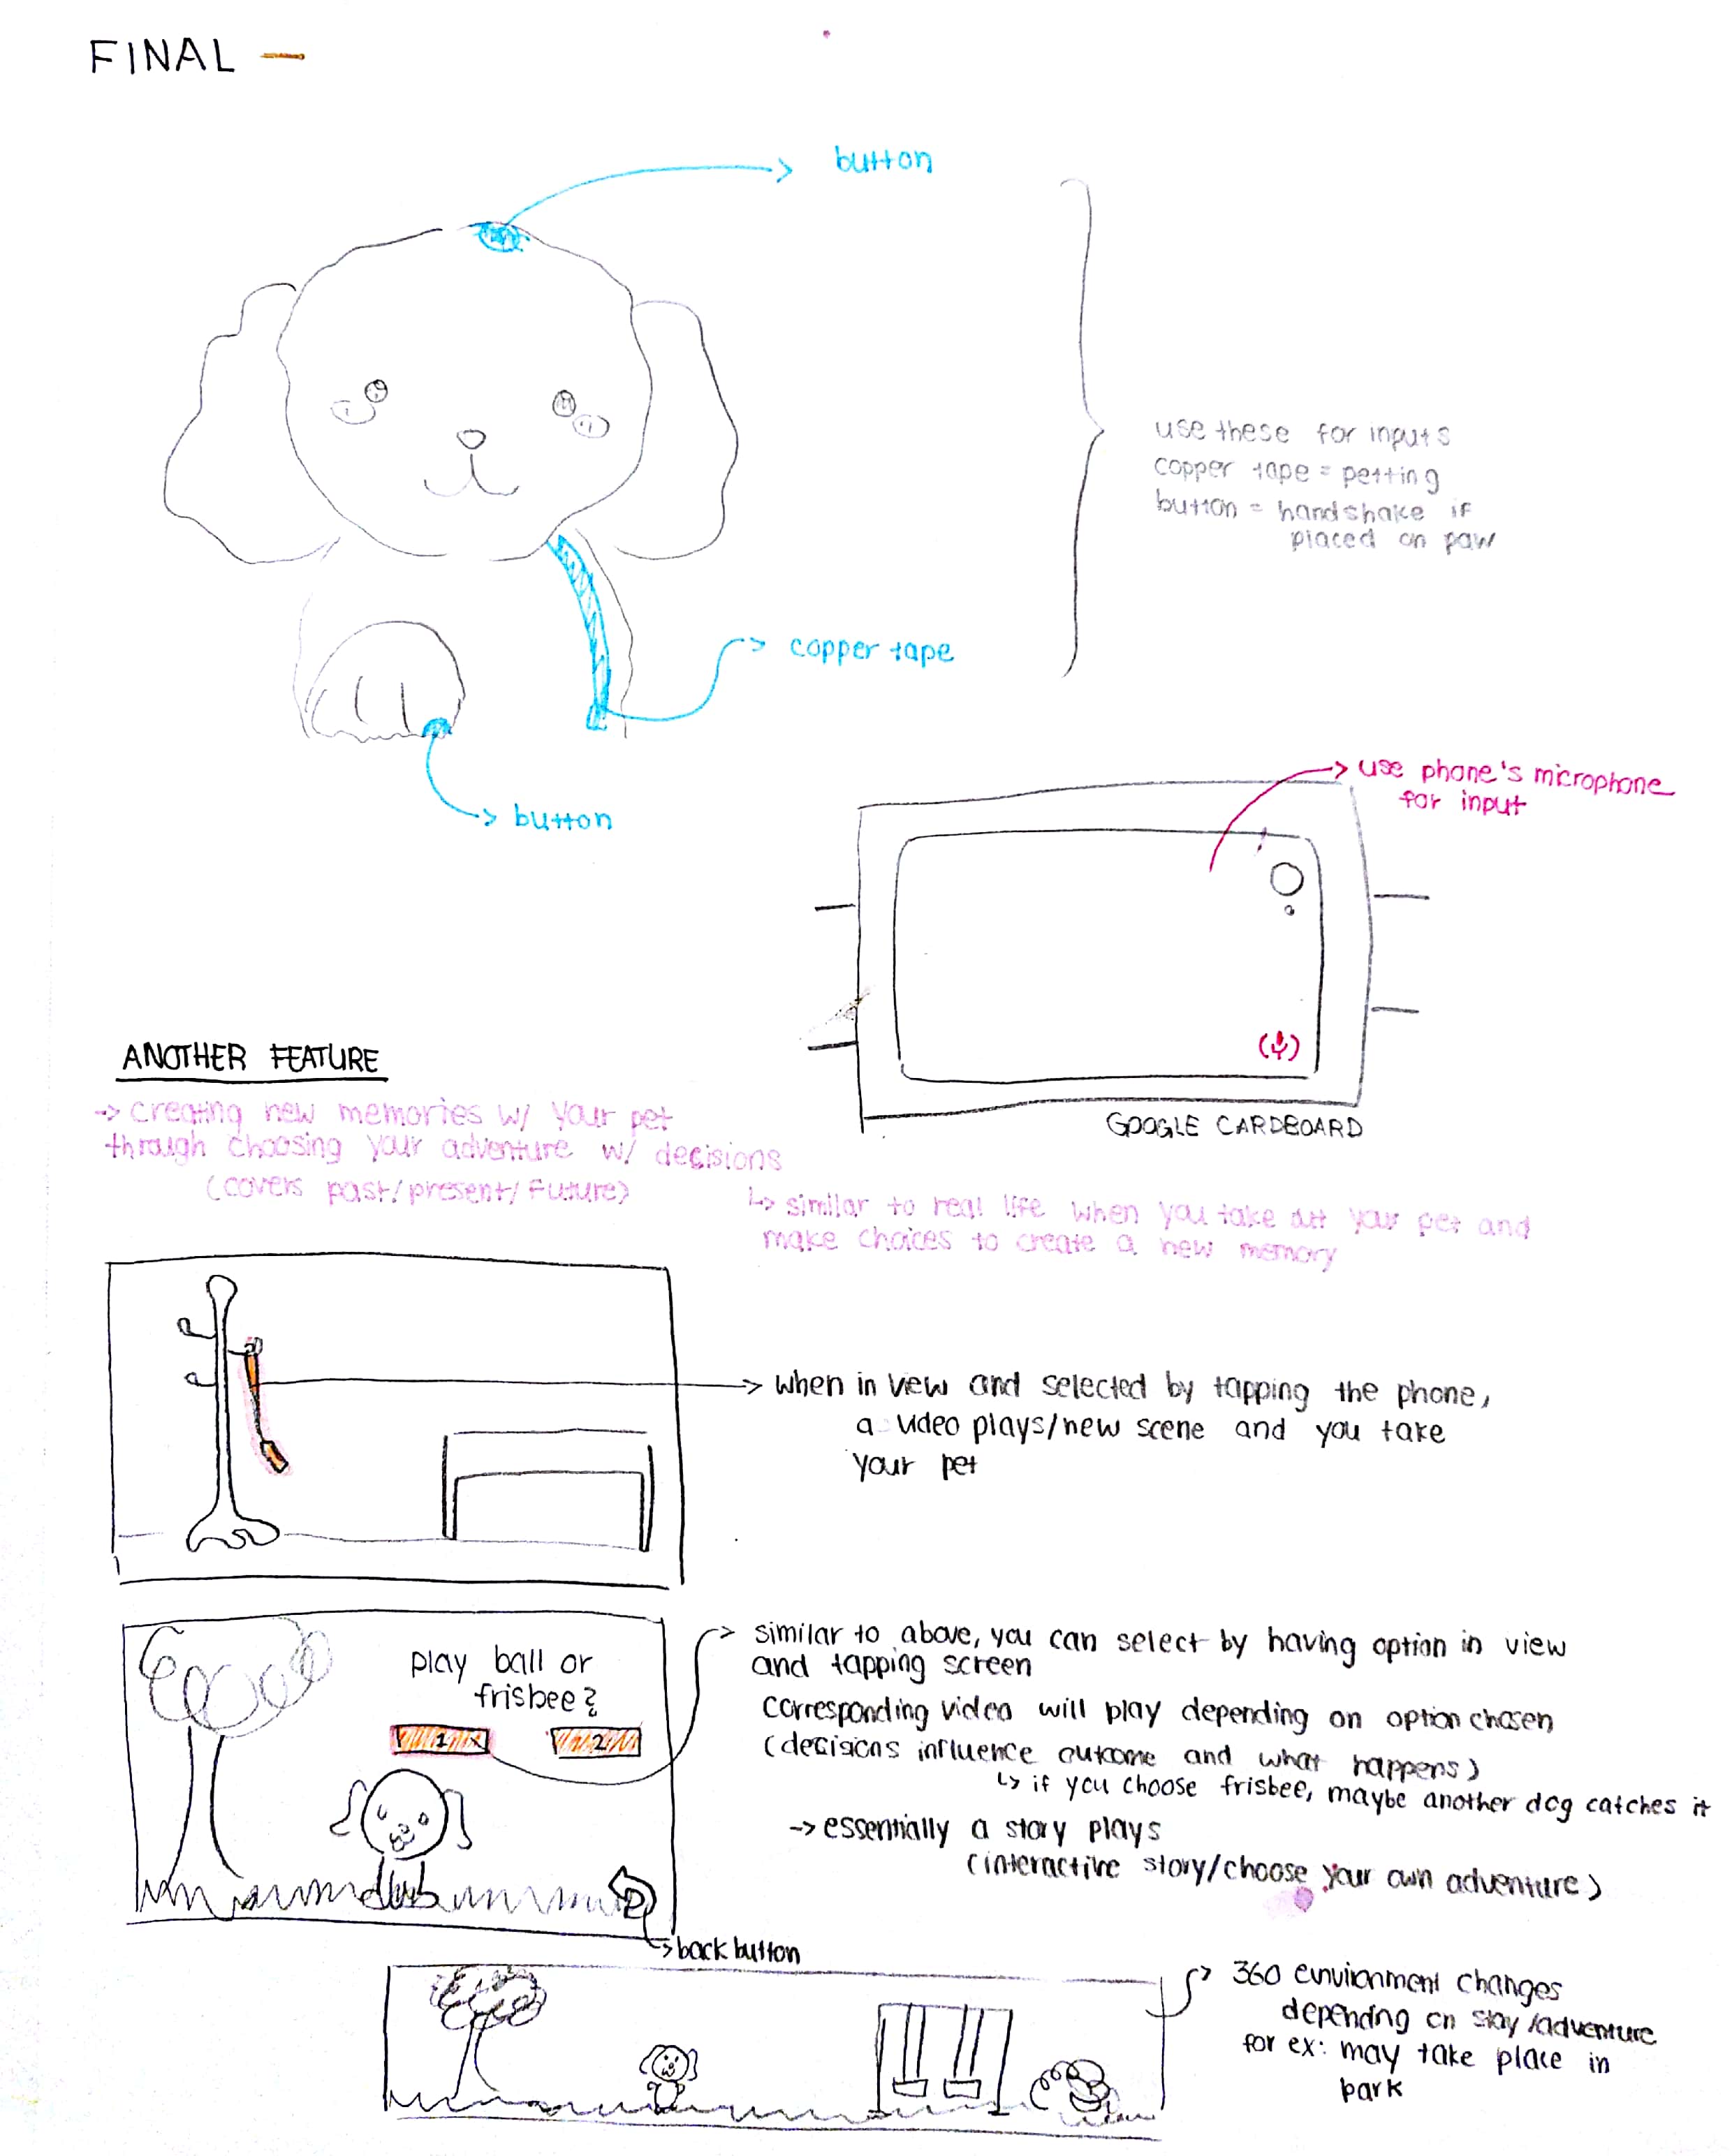 FINAL —
button
use these for inputs
copper tape = petting
button = handshake if
placed on paw
copper tape
button
use phone's microphone
for input
GOOGLE CARDBOARD
ANOTHER FEATURE
→ creating new memories w/ your pet
through choosing your adventure w/ decisions
(covers past/present/future)
↳ similar to real life when you take out your pet and
make choices to create a new memory
when in view and selected by tapping the phone,
a video plays/new scene and you take
your pet
play ball or
frisbee?
1 2
similar to above, you can select by having option in view
and tapping screen
corresponding video will play depending on option chosen
(decisions influence outcome and what happens)
↳ if you choose frisbee, maybe another dog catches it
→ essentially a story plays
(interactive story/choose your own adventure)
back button
360 environment changes
depending on story/adventure
for ex: may take place in
park